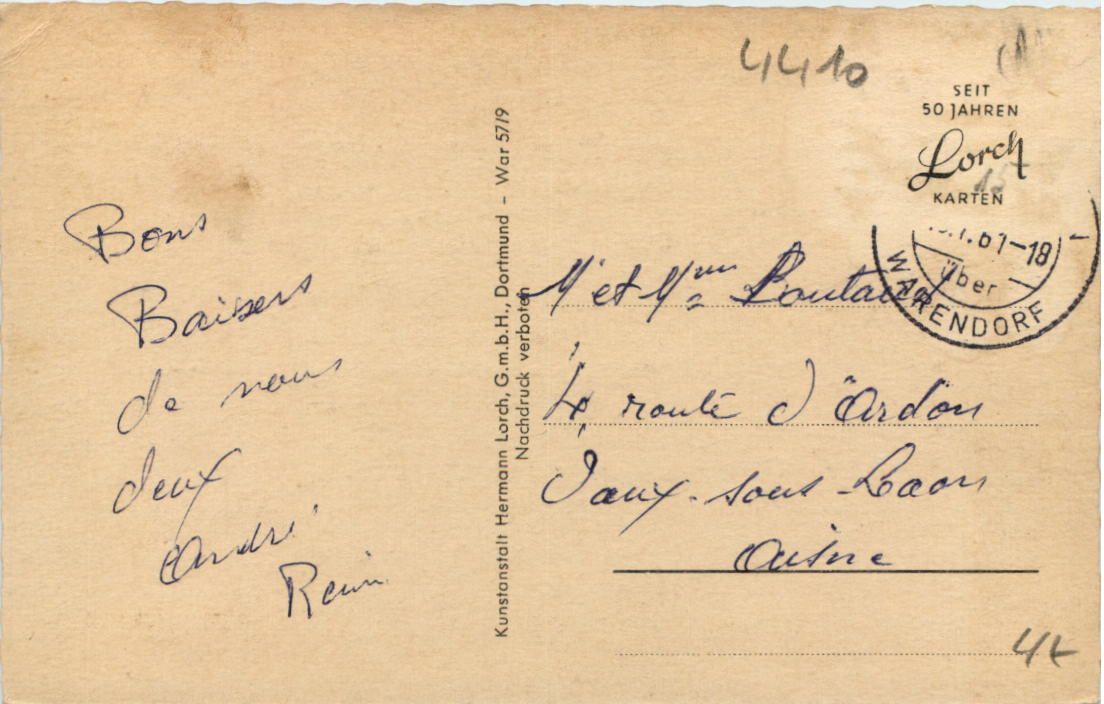 Bons
Baisers
de nous
deux
André
Kunstanstalt Hermann Lorch, G.m.b.H., Dortmund – War 57/9
Nachdruck verboten
4410
SEIT
50 JAHREN
Lorch
KARTEN
15
61-18
über
WARENDORF
Mr et Mme
4, route d'Ardon
Vaux-sous-Laon
Aisne